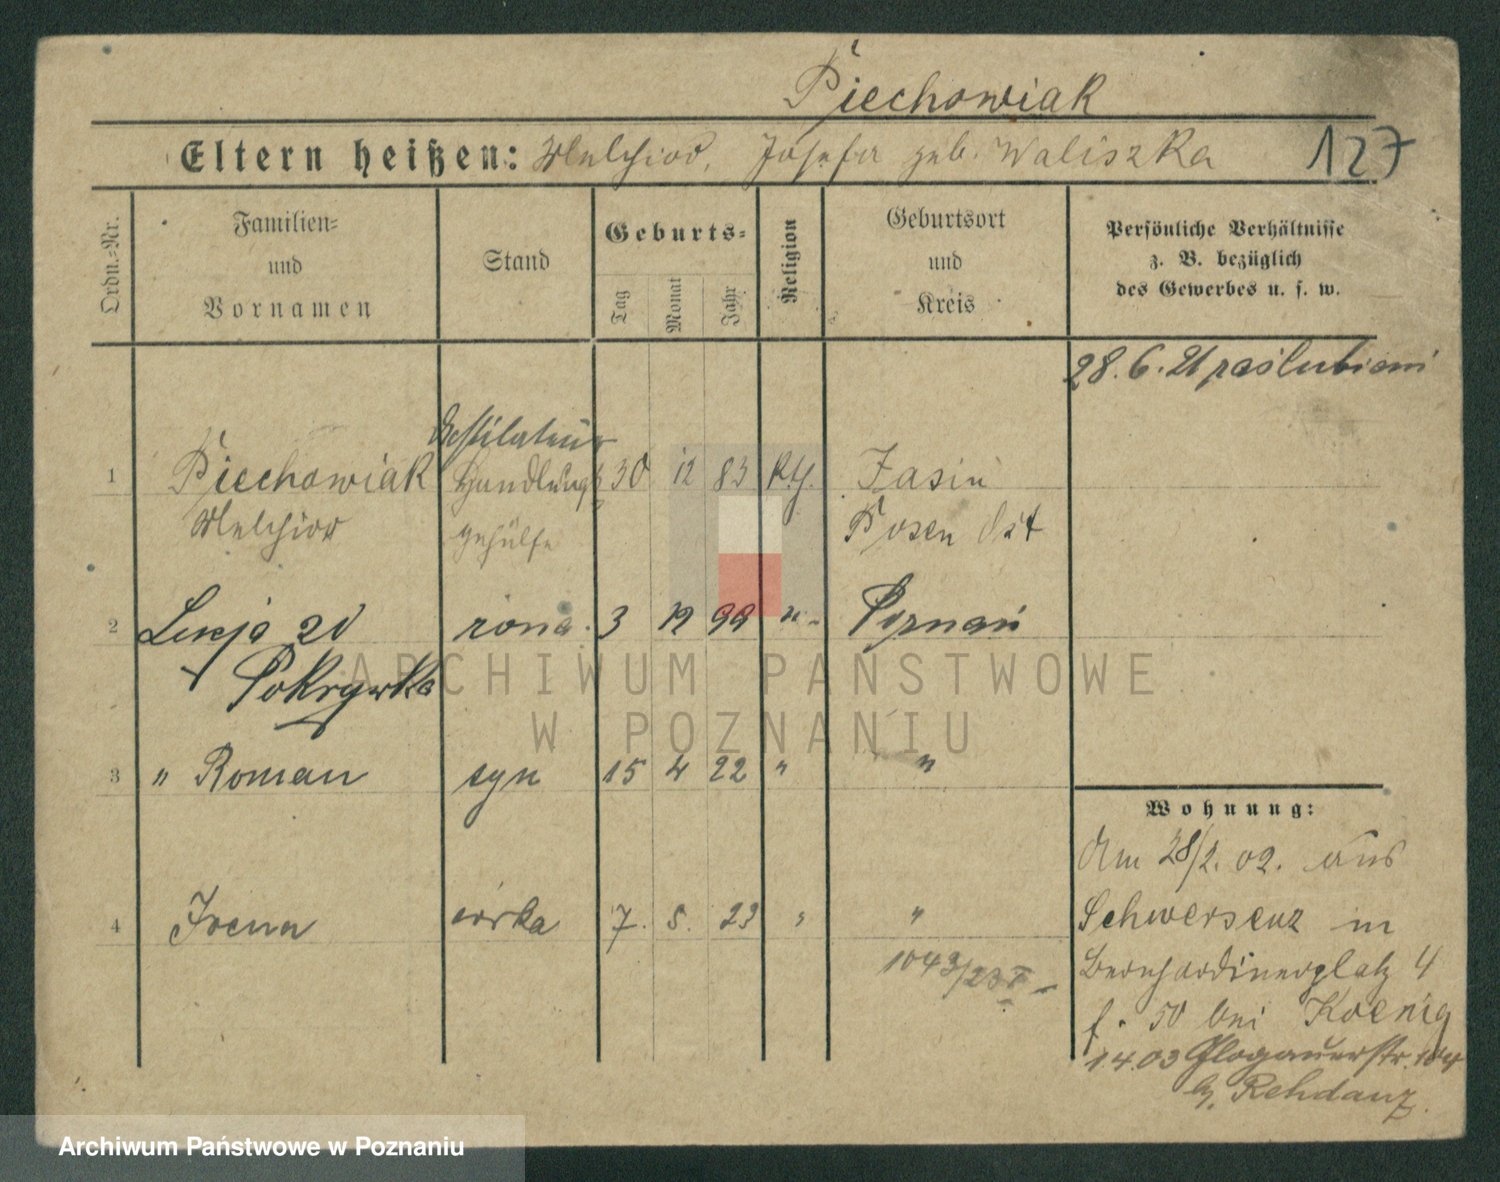 Piechowiak
Eltern heißen: Melchior, Josefa geb. Waliszka
127
Ordn.-Nr.
Familien- und Vornamen
Stand
Geburts-
Tag
Monat
Jahr
Religion
Geburtsort und Kreis
Persönliche Verhältnisse
z. B. bezüglich
des Gewerbes u. s. w.
28.6.21 poślubieni
Destilateur
1 Piechowiak Handlungs 30 12 83 kth. Jasin
Melchior gehülfe Posen Ost
2 żona 3 12 99 " Poznań
Pokrywka
3 " Roman syn 15 4 22 " "
4 Irena córka 7. 8. 23 " "
1043/23
Wohnung:
Am 28/2. 02. aus
Schwersenz in
Bernhardinerplatz 4
f. 50 bei Koenig
1 4.03 Glogauerstr. 104
b. Rehdanz.
ARCHIWUM PAŃSTWOWE
W POZNANIU
Archiwum Państwowe w Poznaniu